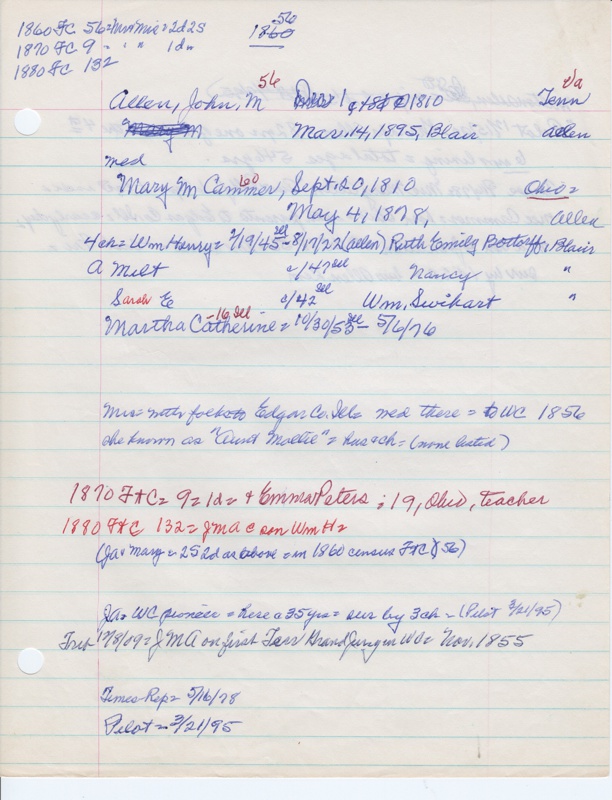 1860 FC 56 = Mr + Mrs = 2d 2s 1860 56
1870 FC 9 = " " 1d
1880 FC 132
Allen, John, M 56 1810 Tenn Va
Mary M Mar. 14, 1895, Blair Allen
med
Mary M Cammer, 60 Sept. 20, 1810 Ohio =
May 4, 1878, Allen
4 ch = Wm Henry = 2/19/45 Ill - 8/17/22 (Allen) Ruth Emily Bottorff, Blair
A Milt c/47 Ill Nancy "
Sarah E c/42 Ill Wm. Swihart "
Martha Catherine = 10/30/55 Ill - 5/6/76 -16 Ill
Mrs = with folks to Edgar Co. Ill = med there = to WC 1856
she known as "Aunt Mollie" = hus + ch = (none listed)
1870 F+C = 9 = 1d = + Emma Peters ; 19, Ohio, teacher
1880 F+C 132 = JMA c son Wm H =
(Ja + Mary = 2s 2d as above = in 1860 census F+C 56)
Ja = WC pioneer = here c 35 yrs = sur by 3 ch = (Pilot 3/21/95)
JMA on first Terr Grand Jury in WC = Nov. 1855
Times Rep = 5/16/78
Pilot = 3/21/95